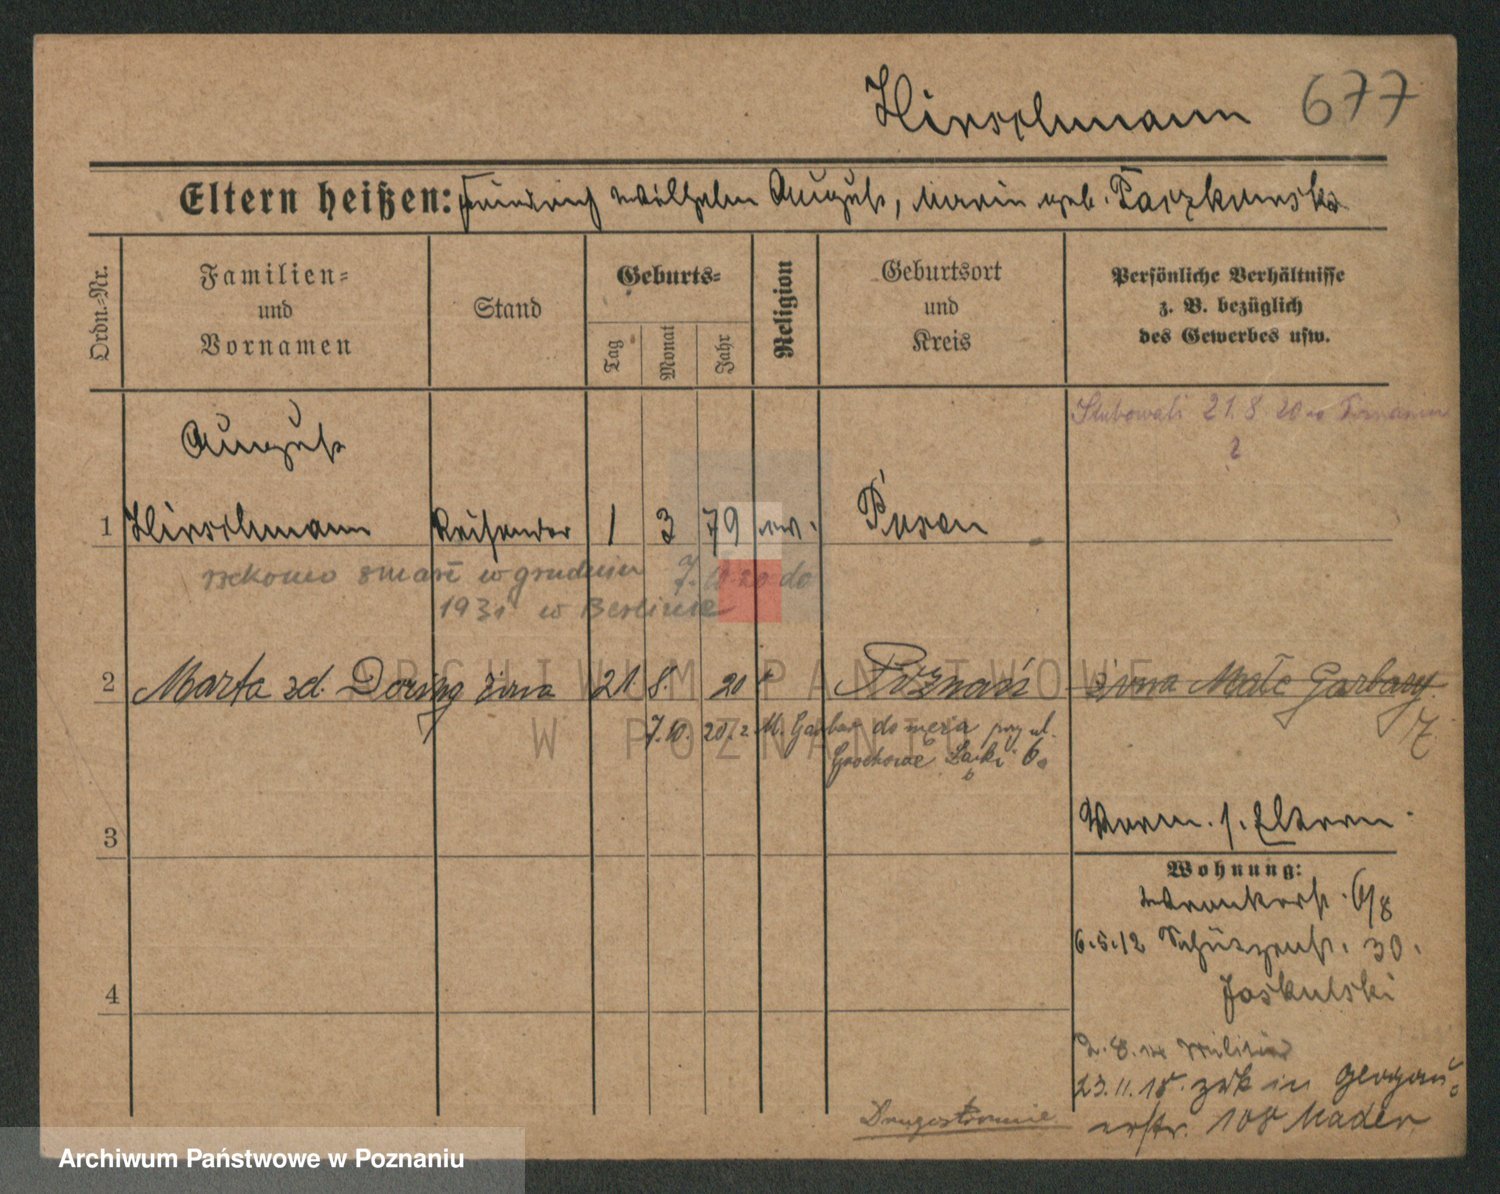 Hirschmann 677
Eltern heißen: Friedrich Wilhelm August, Marie geb. Paczkowska
Ordn.-Nr.
Familien-
und
Vornamen
Stand
Geburts-
Tag
Monat
Jahr
Religion
Geburtsort
und
Kreis
Persönliche Verhältnisse
z. B. bezüglich
des Gewerbes usw.
Ślubowali 21.8.20 w Poznaniu
August
1 Hirschmann Reisender 1 3 79 ev. Posen
rzekomo zmarł w grudniu 7.10.20 do
1931 w Berlinie
2 Marta zd. żona 21 8. 20 Poznań żona Małe Garbary
7.
7.10. 20 z M. Garbar do męża przy ul.
Grochowe Łąki 6.
3
Vorm. s. Eltern.
Wohnung:
Wronkerstr. 6/8
6.5.12 Schützenstr. 30.
Jaskulski
4
2.8.14 Militär
23.11.18. zrk in Glogau
108
Drugostronnie
ARCHIWUM PAŃSTWOWE
W POZNANIU
Archiwum Państwowe w Poznaniu